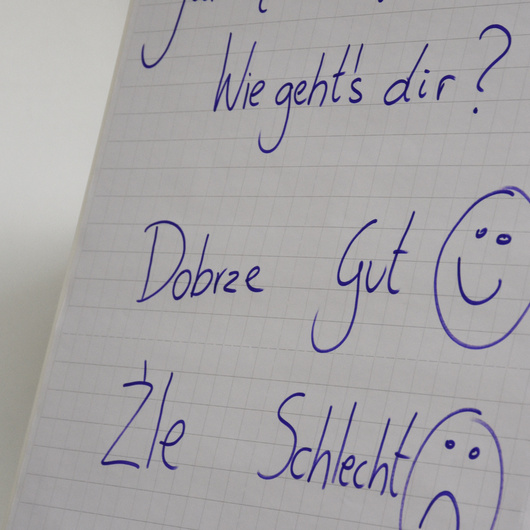 Wie geht's dir?
Dobrze Gut
Źle Schlecht